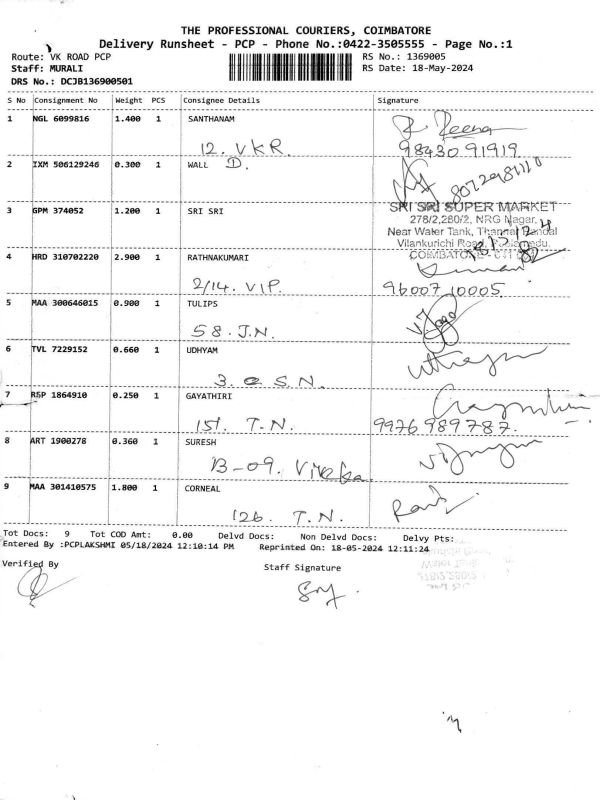 THE PROFESSIONAL COURIERS, COIMBATORE
Delivery Runsheet - PCP - Phone No.:0422-3505555 - Page No.:1
Route: VK ROAD PCP
Staff: MURALI
DRS No.: DCJB136900501
RS No.: 1369005
RS Date: 18-May-2024
S No Consignment No Weight PCS Consignee Details Signature
1 NGL 6099816 1.400 1 SANTHANAM
12. VKR.
9843091919
2 IXM 506129246 0.300 1 WALL
3 GPM 374052 1.200 1 SRI SRI
SRI SRI SUPER MARKET
278/2,280/2, NRG Nagar,
Near Water Tank,
Vilankurichi Road,
4 HRD 310702220 2.900 1 RATHNAKUMARI
2/14. VIP.
9600710005
5 MAA 300646015 0.900 1 TULIPS
58. J.N.
6 TVL 7229152 0.660 1 UDHYAM
3. S.N.
7 RSP 1864910 0.250 1 GAYATHIRI
151. T.N.
9976989787.
8 ART 1900278 0.360 1 SURESH
B-09.
9 MAA 301410575 1.800 1 CORNEAL
126. T.N.
Tot Docs: 9 Tot COD Amt: 0.00 Delvd Docs: Non Delvd Docs: Delvy Pts:
Entered By :PCPLAKSHMI 05/18/2024 12:10:14 PM Reprinted On: 18-05-2024 12:11:24
Verified By
Staff Signature